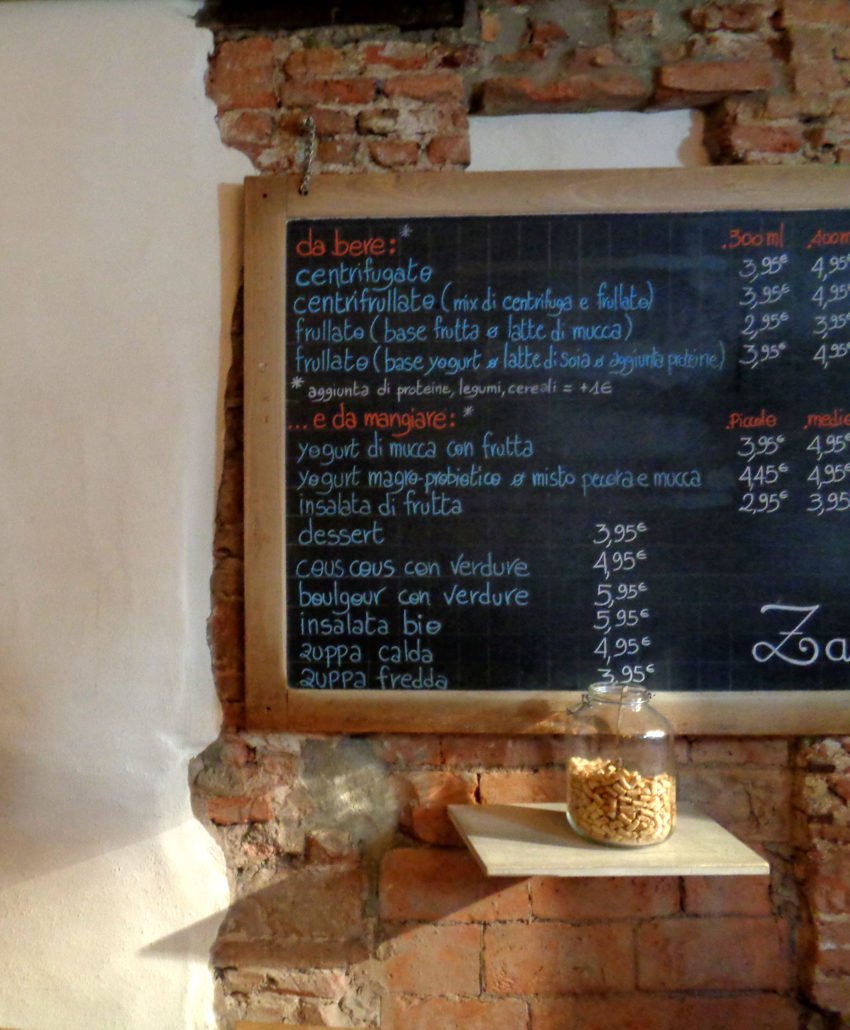 da bere:* .300 ml .400 m
centrifugato 3,95€ 4,95€
centrifrullato (mix di centrifuga e frullato) 3,95€ 4,95
frullato (base frutta ø latte di mucca) 2,95€ 3,95
frullato (base yogurt ø latte di soia ø aggiunta proteine) 3,95€ 4,95
* aggiunta di proteine, legumi, cereali = +1€
... e da mangiare:* .piccolo .medio
yogurt di mucca con frutta 3,95€ 4,95
yogurt magro-probiotico ø misto pecora e mucca 4,45€ 4,95
insalata di frutta 2,95€ 3,95
dessert 3,95€
cous cous con verdure 4,95€
boulgour con verdure 5,95€
insalata bio 5,95€
zuppa calda 4,95€
zuppa fredda 3,95€
Za